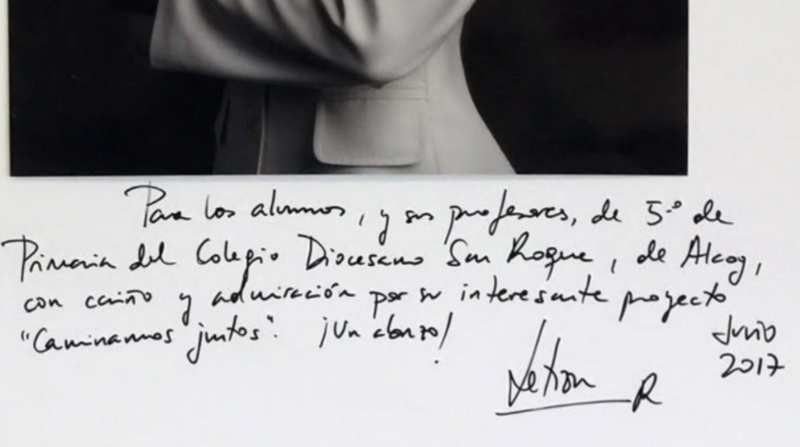 Para los alumnos, y sus profesores, de 5.º de
Primaria del Colegio Diocesano San Roque, de Alcoy,
con cariño y admiración por su interesante proyecto
"Caminamos juntos". ¡Un abrazo!
Junio
2017
Letizia R